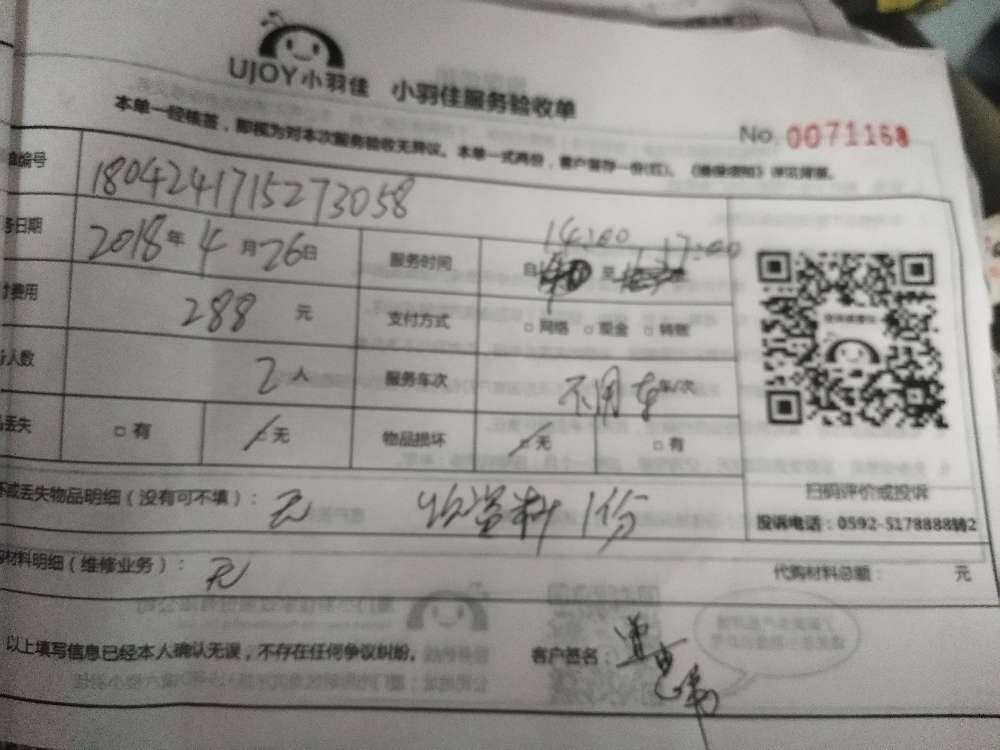 UJOY小羽佳 小羽佳服务验收单
No. 0071168
本单一经核签，即视为对本次服务验收无异议。本单一式两份，客户留存一份(红)。《维保须知》详见背面。
编号 1804241715273058
务日期 2018年4月26日 服务时间 14:00 17:00
自 至
费用 288 元 支付方式 □网络 □现金 □转账
人数 2人 服务车次 不用车 车/次
丢失 □有 □无 物品损坏 □无 □有
坏或丢失物品明细（没有可不填）： 无 收资料1份
扫码评价或投诉
投诉电话：0592-5178888转2
购材料明细（维修业务）： 无 代购材料总额： 元
以上填写信息已经本人确认无误，不存在任何争议纠纷。 客户签名：